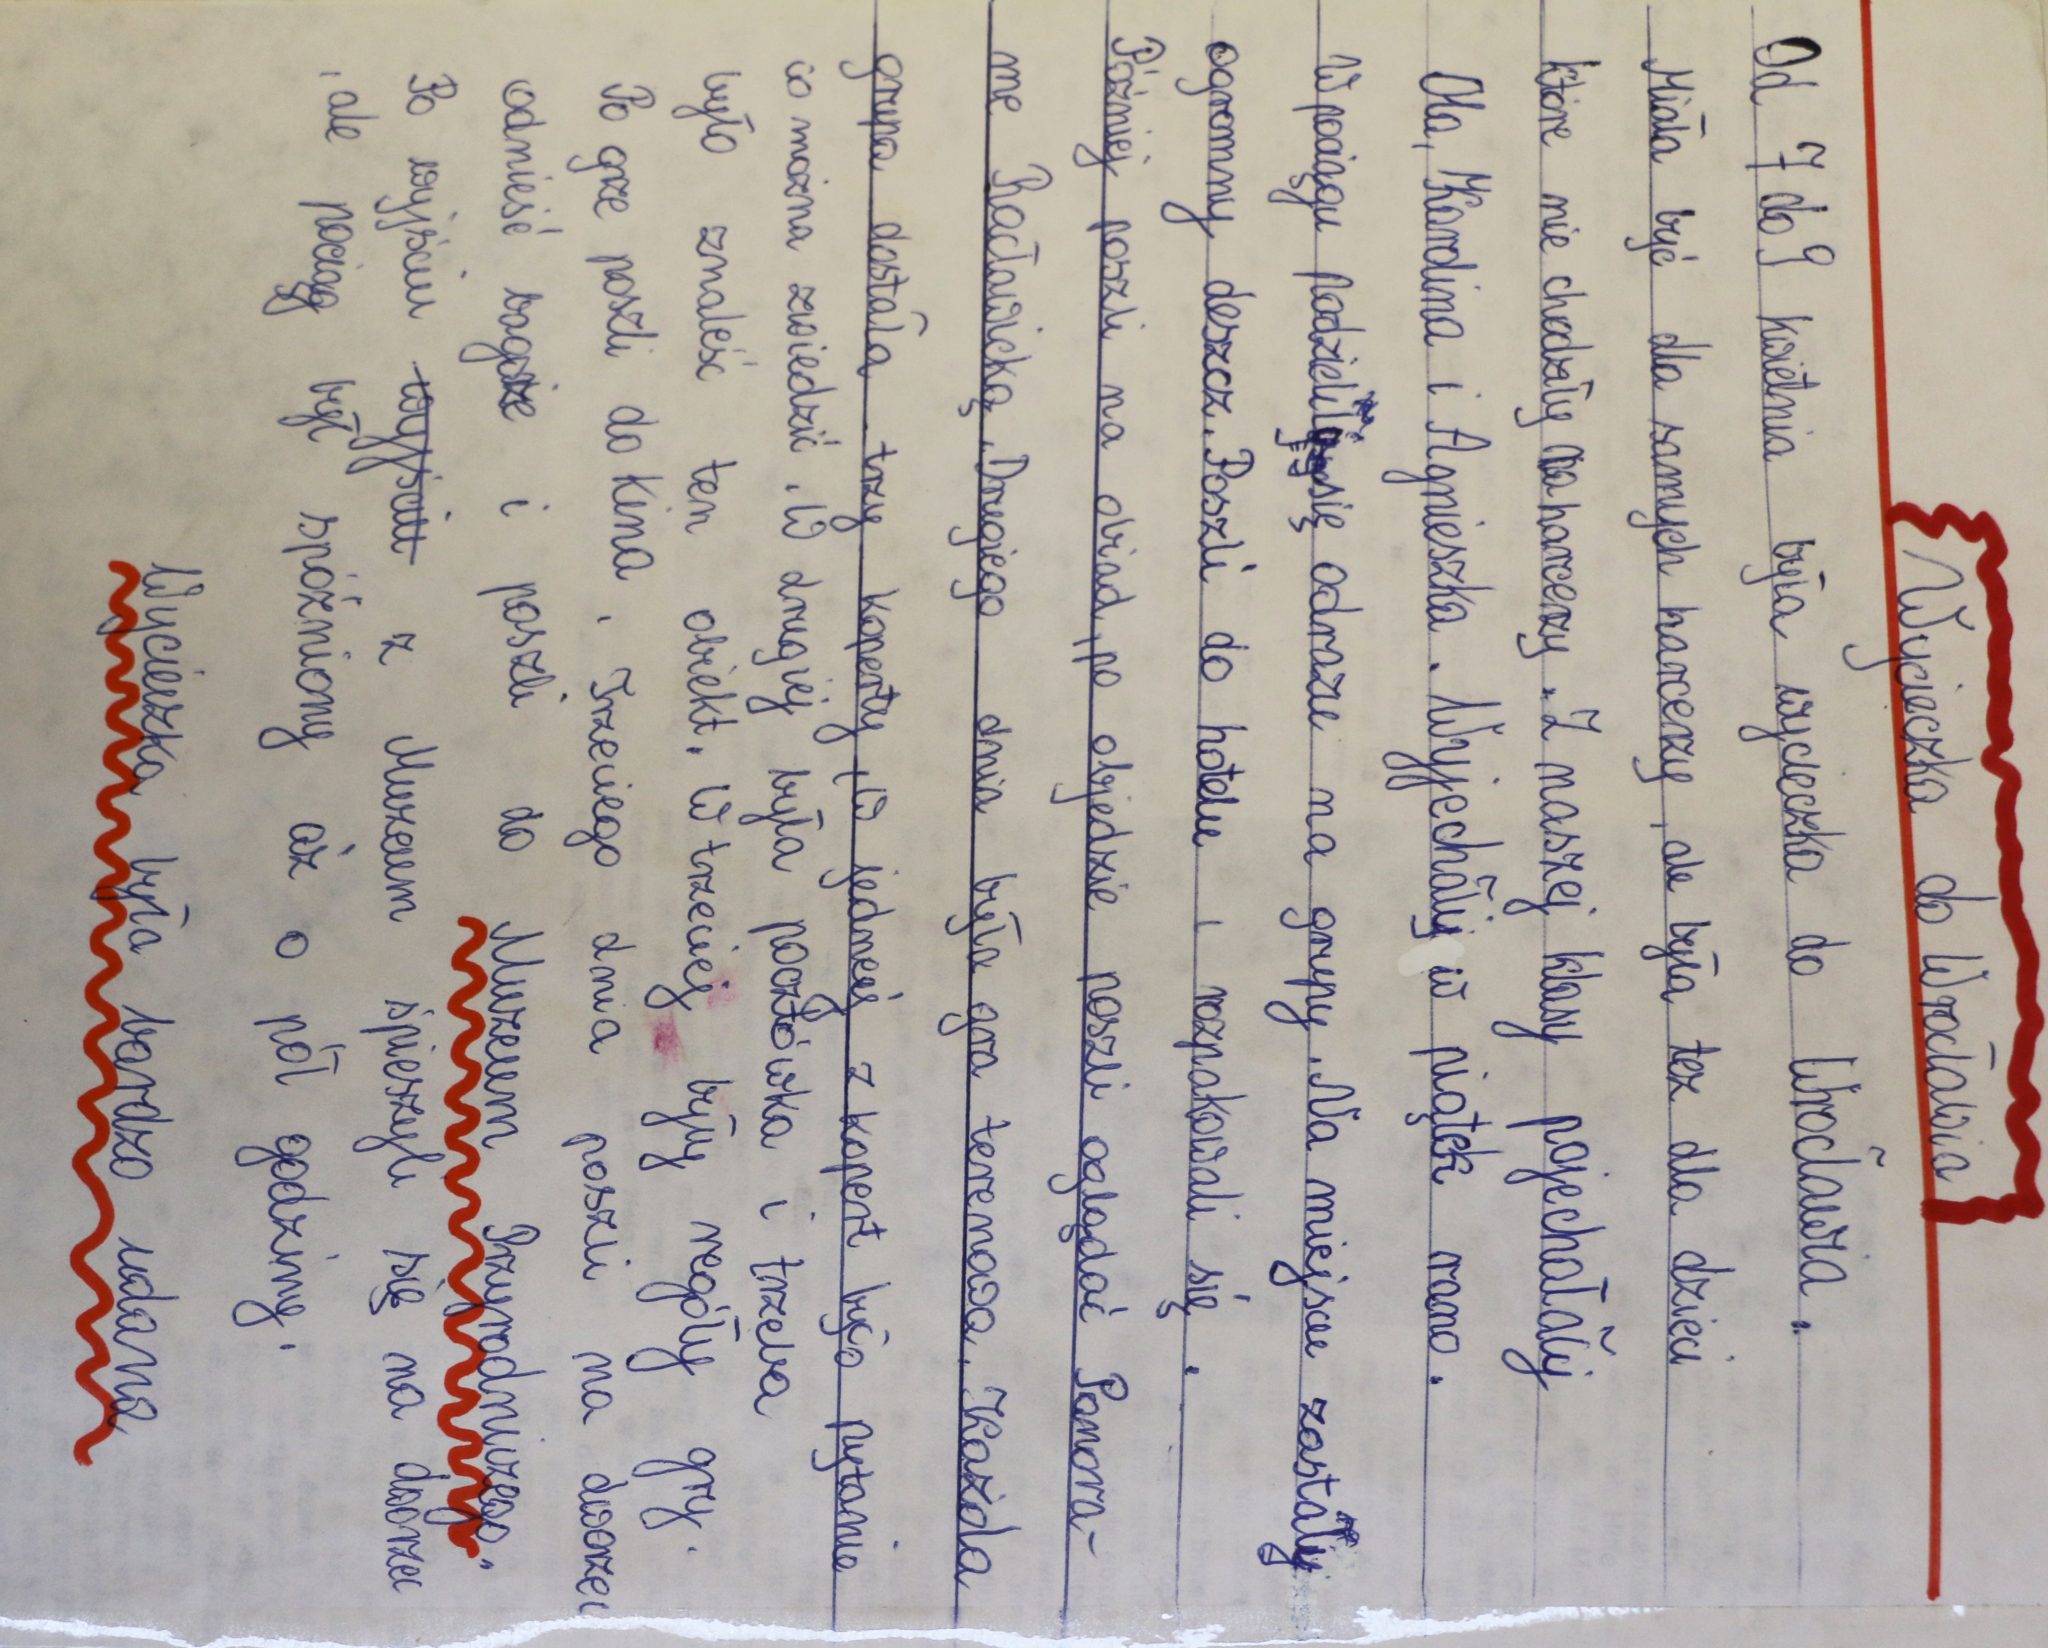 Wycieczka do Wrocławia
Od 7 do 9 kwietnia była wycieczka do Wrocławia.
Miała być dla samych harcerzy, ale była też dla dzieci
które nie chodziły na harcerzy. Z naszej klasy pojechały
Ola, Karolina i Agnieszka. Wyjechały w piątek rano.
W pociągu podzielili się odrazu na grupy. Na miejscu zastały
ogromny deszcz. Poszli do hotelu i rozpakowali się.
Później poszli na obiad, po objedzie poszli oglądać Panora-
me Racławicką. Drugiego dnia była gra terenowa. Każda
grupa dostała trzy koperty. W jednej z kopert było pytanie
co można zwiedzić. W drugiej była pocztówka i trzeba
było znaleść ten obiekt. W trzeciej były reguły gry.
Po grze poszli do kina. Trzeciego dnia poszli na dworzec
odnieść bagaże i poszli do Muzeum Przyrodniczego.
Po wyjściu wyjściu z Muzeum śpieszyli się na dworzec
, ale pociąg był spóźniony aż o pół godziny.
Wycieczka była bardzo udana